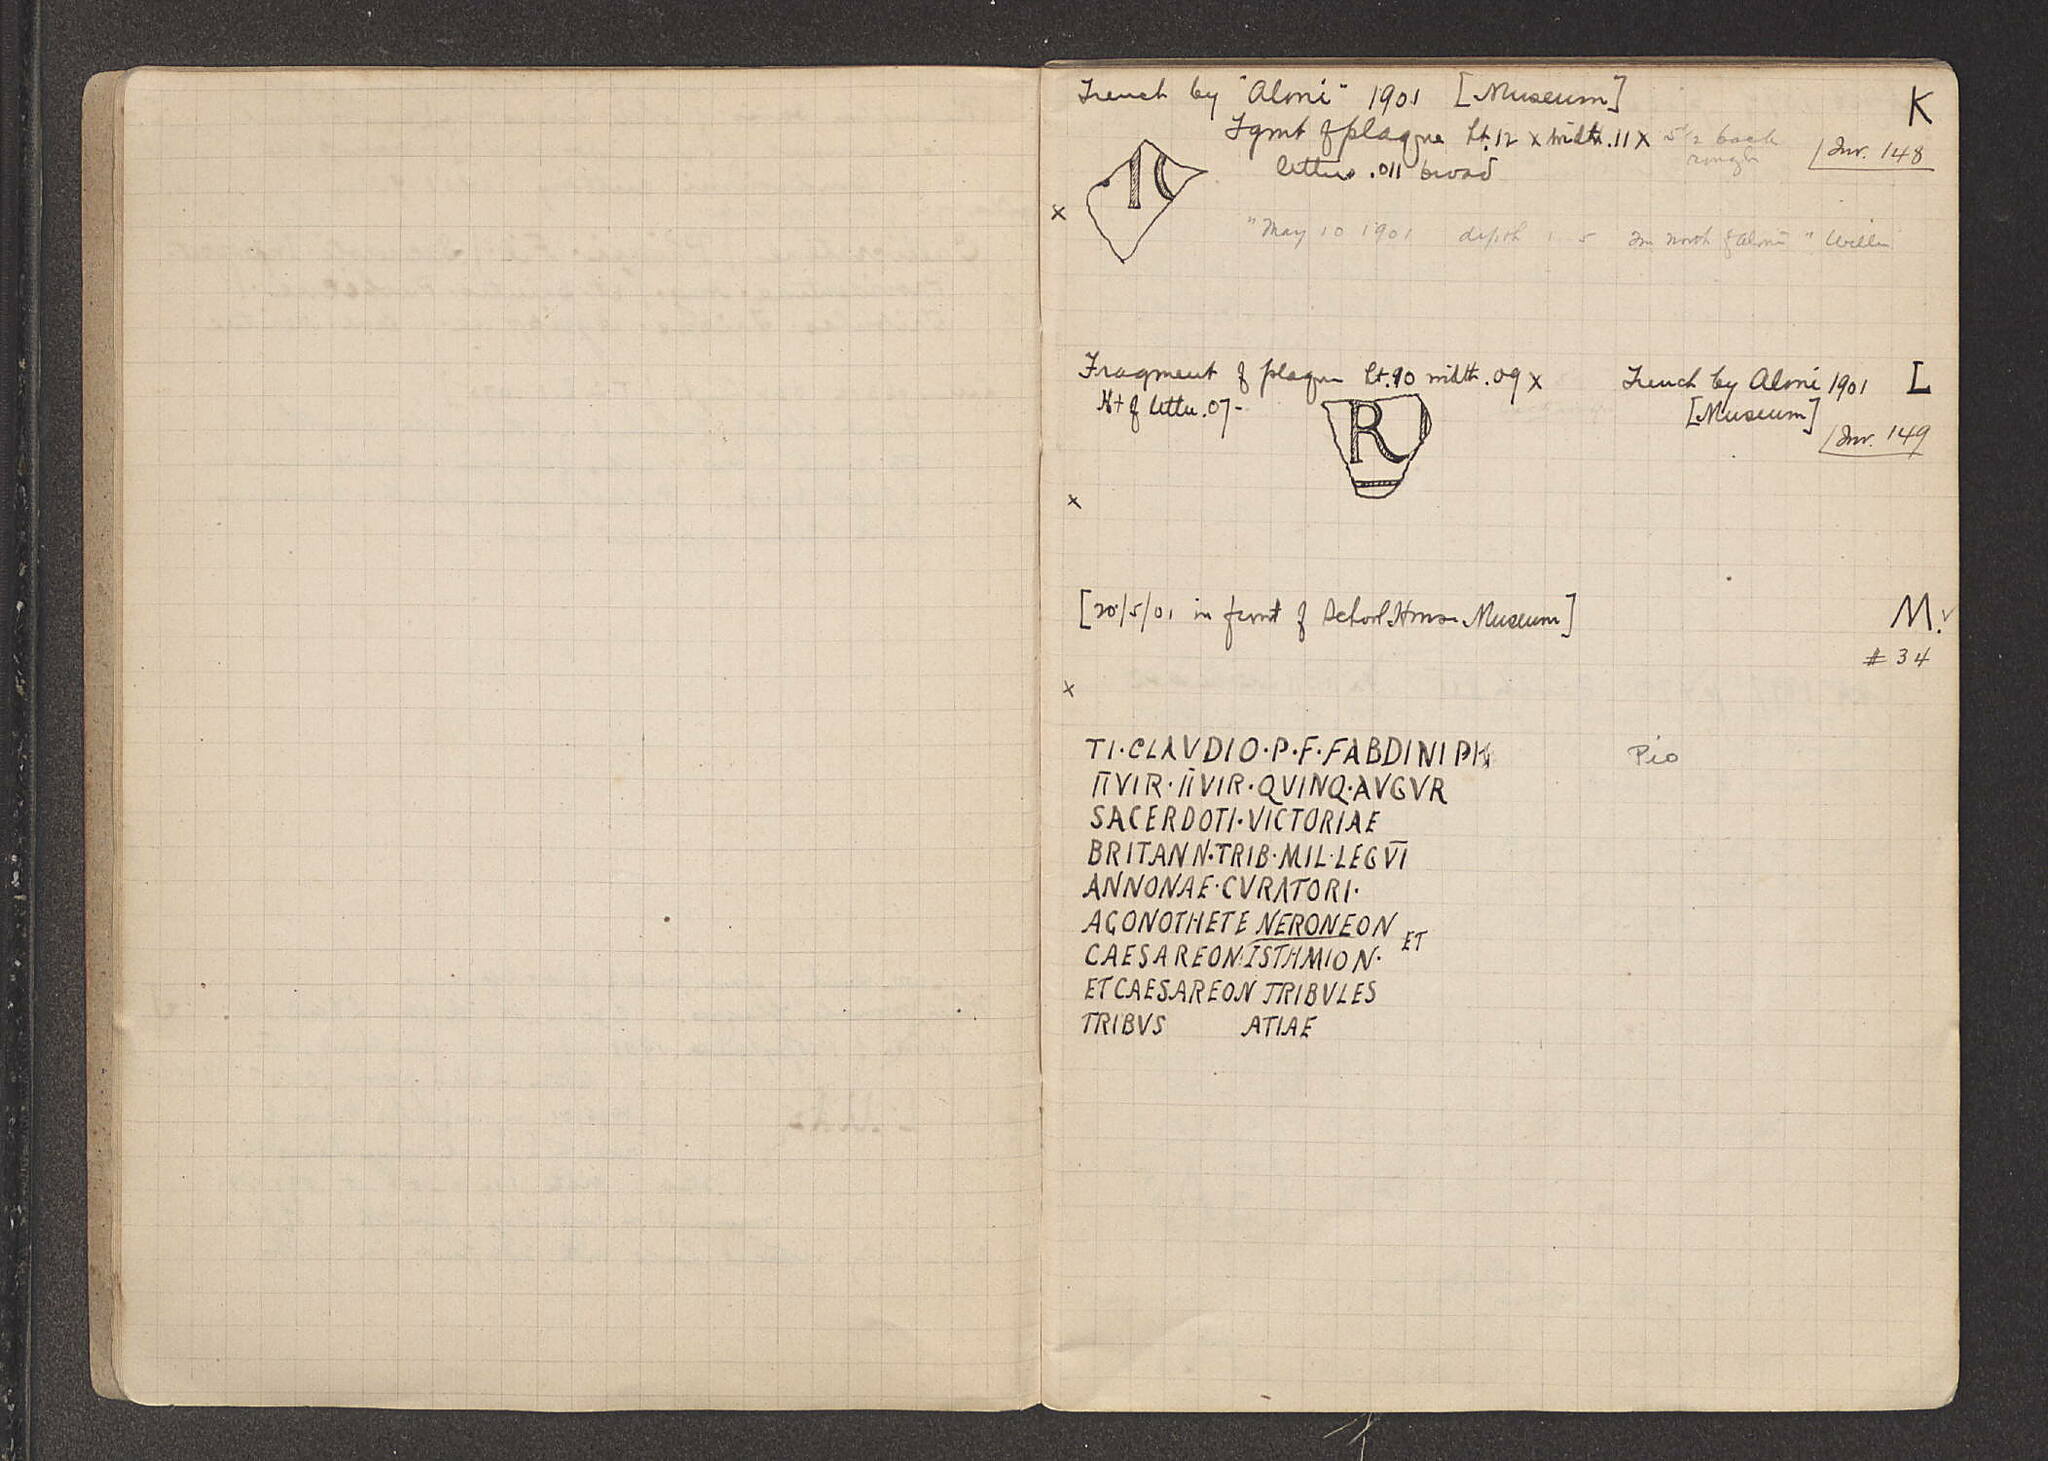 Trench by "Aloni" 1901 [Museum] K
Fgmt of plaque ht .12 x width .11 x 5½ back
rough
Inv. 148
letters .011 broad
·I(
x
"May 10 1901 depth 1 5 m north of Aloni"
Fragment of plaque ht .10 width .09 x Trench by Aloni 1901 L
Ht of letter .07- [Museum]
Inv. 149
R
x
[20/5/01 in front of School House Museum] M.
# 34
x
TI·CLAVDIO·P·F·FABDINIPH Pio
IIVIR·IIVIR·QVINQ·AVGVR
SACERDOTI·VICTORIAE
BRITANN·TRIB·MIL·LEG VI
ANNONAE·CVRATORI·
AGONOTHETE NERONEON
ET
CAESAREON·ISTHMION·
ET CAESAREON TRIBVLES
TRIBVS ATIAE